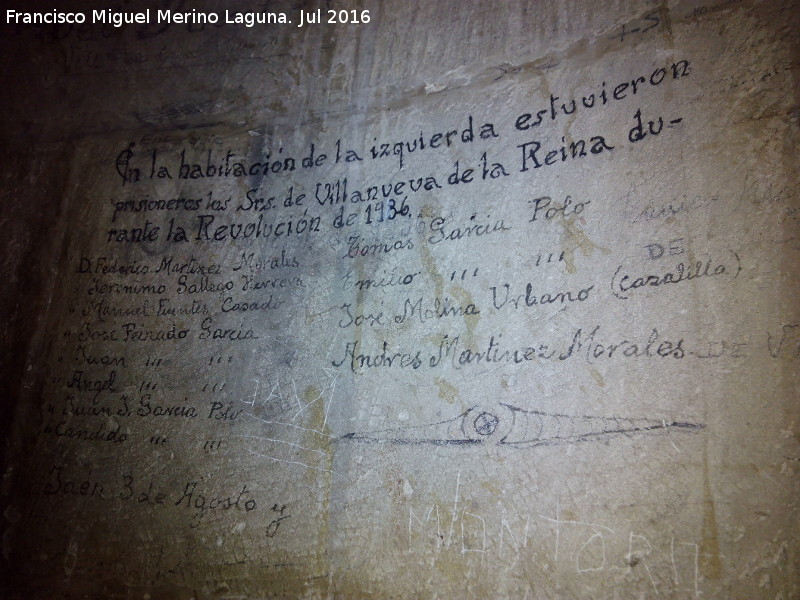 Francisco Miguel Merino Laguna. Jul 2016
En la habitación de la izquierda estuvieron
prisioneros los Srs. de Villanueva de la Reina du-
rante la Revolución de 1936.
D. Federico Martinez Morales
" Jeronimo Gallego Herrera
" Manuel Fuentes Casado
" José Peinado Garcia
" Juan ,,, ,,,
" Angel ,,, ,,,
" Juan J. Garcia Polo
" Candido ,,, ,,,
Tomas Garcia Polo
Emilio ,,, ,,,
José Molina Urbano (cazalilla)
DE
Andres Martinez Morales DE
Jaén 3 de Agosto y
MONTORO